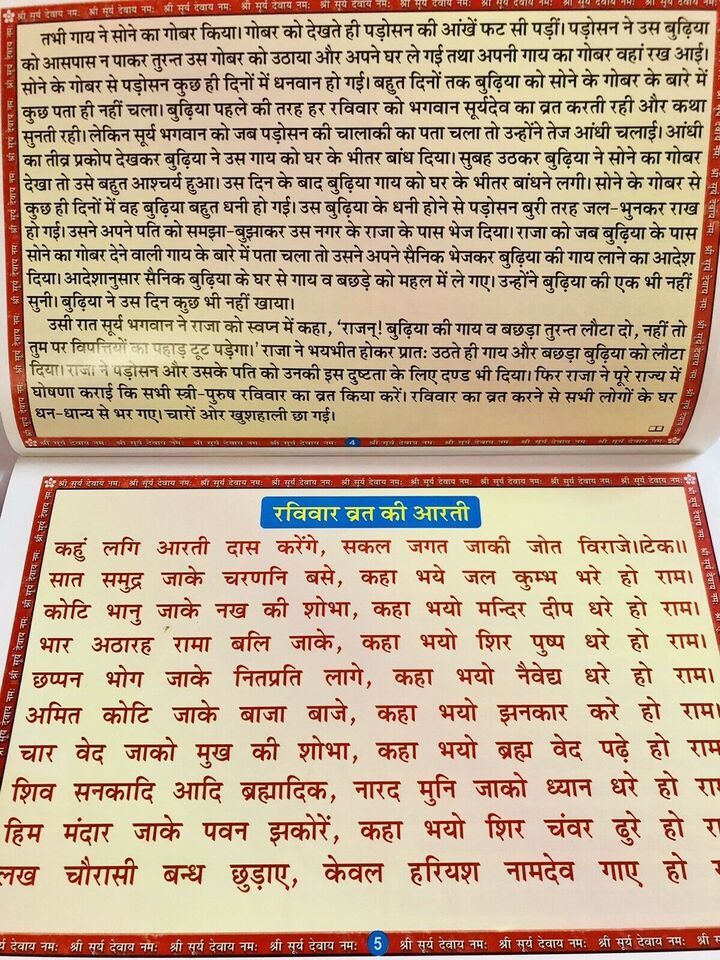 श्री सूर्य देवाय नमः श्री सूर्य देवाय नमः श्री सूर्य देवाय नमः श्री सूर्य देवाय नमः श्री सूर्य देवाय नमः
तभी गाय ने सोने का गोबर किया। गोबर को देखते ही पड़ोसन की आंखें फट सी पड़ीं। पड़ोसन ने उस बुढ़िया
को आसपास न पाकर तुरन्त उस गोबर को उठाया और अपने घर ले गई तथा अपनी गाय का गोबर वहां रख आई।
सोने के गोबर से पड़ोसन कुछ ही दिनों में धनवान हो गई। बहुत दिनों तक बुढ़िया को सोने के गोबर के बारे में
कुछ पता ही नहीं चला। बुढ़िया पहले की तरह हर रविवार को भगवान सूर्यदेव का व्रत करती रही और कथा
सुनती रही। लेकिन सूर्य भगवान को जब पड़ोसन की चालाकी का पता चला तो उन्होंने तेज आंधी चलाई। आंधी
का तीव्र प्रकोप देखकर बुढ़िया ने उस गाय को घर के भीतर बांध दिया। सुबह उठकर बुढ़िया ने सोने का गोबर
देखा तो उसे बहुत आश्चर्य हुआ। उस दिन के बाद बुढ़िया गाय को घर के भीतर बांधने लगी। सोने के गोबर से
कुछ ही दिनों में वह बुढ़िया बहुत धनी हो गई। उस बुढ़िया के धनी होने से पड़ोसन बुरी तरह जल-भुनकर राख
हो गई। उसने अपने पति को समझा-बुझाकर उस नगर के राजा के पास भेज दिया। राजा को जब बुढ़िया के पास
सोने का गोबर देने वाली गाय के बारे में पता चला तो उसने अपने सैनिक भेजकर बुढ़िया की गाय लाने का आदेश
दिया। आदेशानुसार सैनिक बुढ़िया के घर से गाय व बछड़े को महल में ले गए। उन्होंने बुढ़िया की एक भी नहीं
सुनी। बुढ़िया ने उस दिन कुछ भी नहीं खाया।
उसी रात सूर्य भगवान ने राजा को स्वप्न में कहा, 'राजन्! बुढ़िया की गाय व बछड़ा तुरन्त लौटा दो, नहीं तो
तुम पर विपत्तियों का पहाड़ टूट पड़ेगा।' राजा ने भयभीत होकर प्रातः उठते ही गाय और बछड़ा बुढ़िया को लौटा
दिया। राजा ने पड़ोसन और उसके पति को उनकी इस दुष्टता के लिए दण्ड भी दिया। फिर राजा ने पूरे राज्य में
घोषणा कराई कि सभी स्त्री-पुरुष रविवार का व्रत किया करें। रविवार का व्रत करने से सभी लोगों के घर
धन-धान्य से भर गए। चारों ओर खुशहाली छा गई।
4
श्री सूर्य देवाय नमः श्री सूर्य देवाय नमः श्री सूर्य देवाय नमः श्री सूर्य देवाय नमः श्री सूर्य देवाय नमः
रविवार व्रत की आरती
कहुं लगि आरती दास करेंगे, सकल जगत जाकी जोत विराजे।।टेक।।
सात समुद्र जाके चरणनि बसे, कहा भये जल कुम्भ भरे हो राम।
कोटि भानु जाके नख की शोभा, कहा भयो मन्दिर दीप धरे हो राम।
भार अठारह रामा बलि जाके, कहा भयो शिर पुष्प धरे हो राम।
छप्पन भोग जाके नितप्रति लागे, कहा भयो नैवेद्य धरे हो राम।
अमित कोटि जाके बाजा बाजे, कहा भयो झनकार करे हो राम।
चार वेद जाको मुख की शोभा, कहा भयो ब्रह्म वेद पढ़े हो राम
शिव सनकादि आदि ब्रह्मादिक, नारद मुनि जाको ध्यान धरे हो
हिम मंदार जाके पवन झकोरें, कहा भयो शिर चंवर ढुरे हो
लख चौरासी बन्ध छुड़ाए, केवल हरियश नामदेव गाए हो
श्री सूर्य देवाय नमः श्री सूर्य देवाय नमः श्री सूर्य देवाय नमः 5 श्री सूर्य देवाय नमः श्री सूर्य देवाय नमः श्री सूर्य देवाय नमः